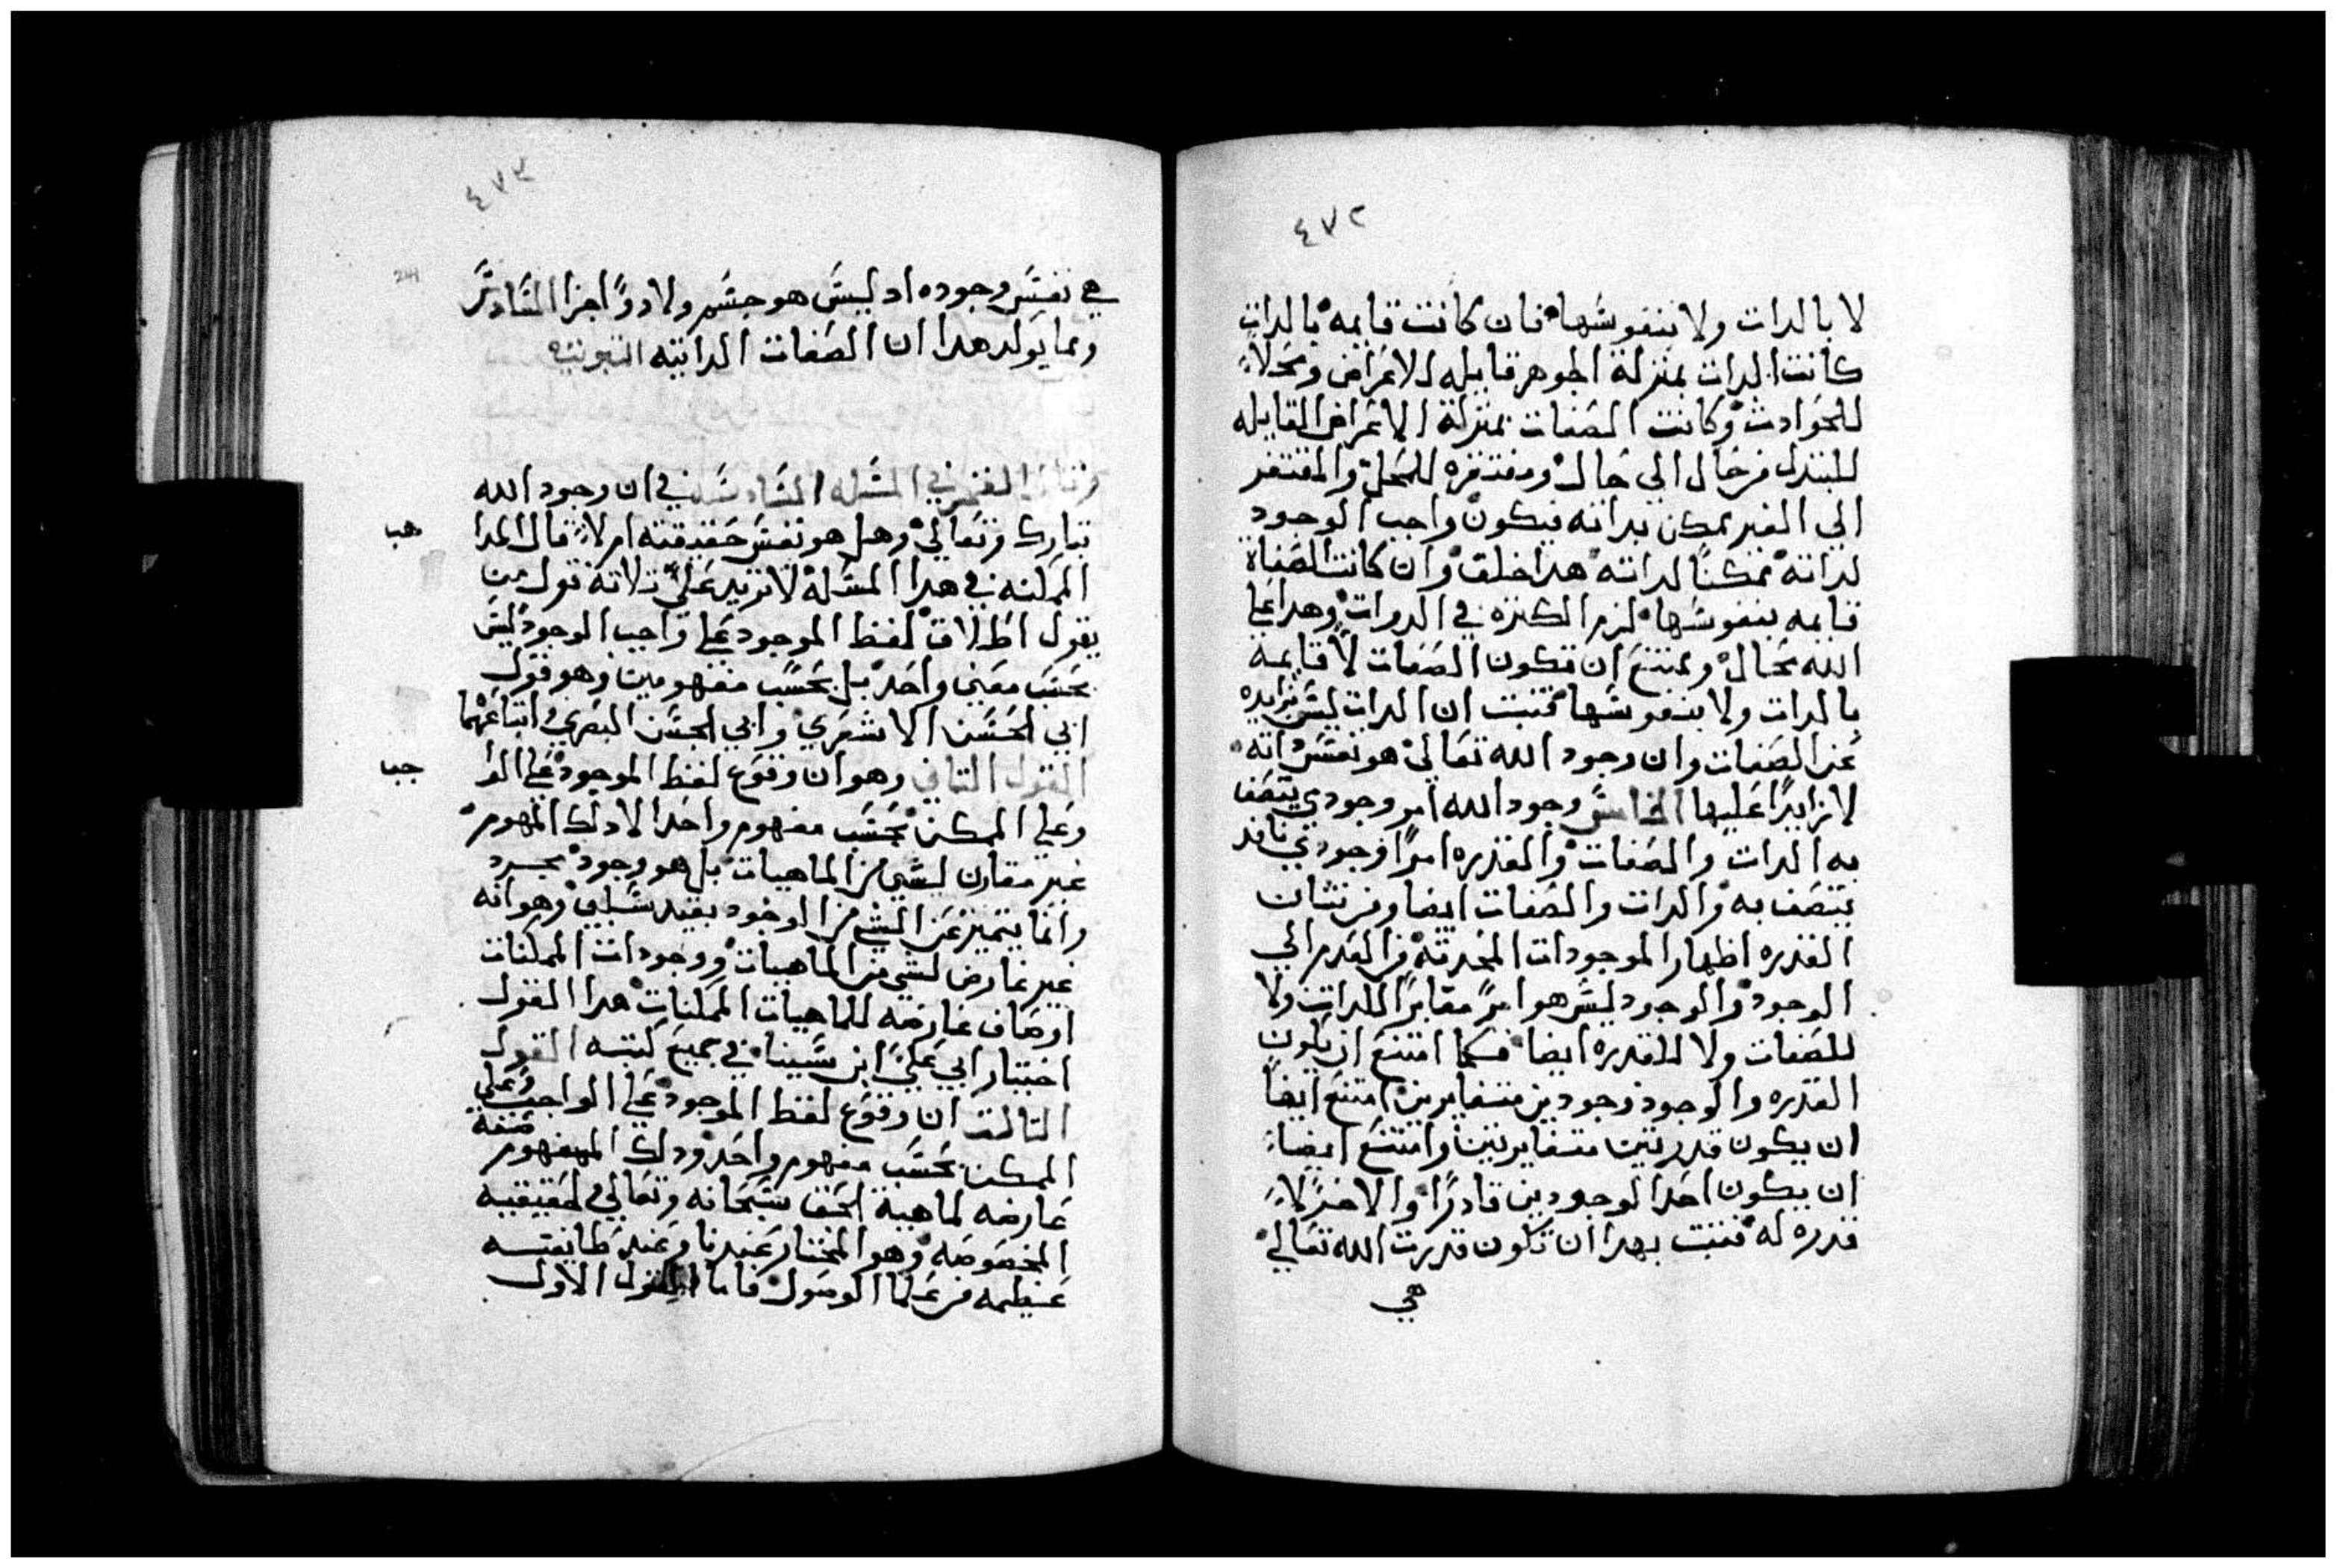 ٤٧٢
لا بالدات ولا بنفوسها فان كانت قايمه بالدات
كانت الدات بمنزلة الجوهر قابله للاعراض ومحلاً
للحوادث وكانت الصفات بمنزلة الاعراض القابله
للتبدل من حال الى حال ومفتقره للمحل والمفتقر
الي الغير ممكن بداته فيكون واجب الوجود
لداته ممكناً لداته هدا خلف وان كانت الصفاة
قايمه بنفوسها لزم الكتره في الدوات وهدا علي
الله محال وممتنع ان تكون الصفات لا قايمه
بالدات ولا بنفوسها فتبت ان الدات ليس بزايده
عن الصفات وان وجود الله تعالي هو نفس داته
لا زايداً عليها الخامس وجود الله امر وجودي يتصف
به الدات والصفات والقدره امراً وجودي نافد
يتصف به والدات والصفات ايضا ومن شان
القدره اظهار الموجودات المحدته من العدم الي
الوجود والوجود ليس هو امرً مغايراً للدات ولا
للصفات ولا للقدره ايضا فكما امتنع ان يكون
القدره والوجود وجودين متغايرين امتنع ايضاً
ان يكون قدرتين متغايرتين وامتنع ايضاً
ان يكون احد الوجودين قادراً والاخر لا
قدره له فتبت بهدا ان تكون قدرت الله تعالي
هي
٤٧٣
241
هي نفس وجوده اد ليس هو جسم ولا دو اجزا السادس
ومما يولد هدا ان الصفات الداتيه التبوتيه
في المسله السادسه في ان وجود الله
تبارك وتعالي وهل هو نفس حقيقته ام لا قال
الممكنه في هدا المسله لا تزيد علي تلاتة قول من
يقول اطلاق لفظ الموجود علي واجب الوجود ليس
بحسب معني واحد بل بحسب مفهومين وهو قول
ابي الحسن الاشعري وابي الحسن البصري اتباعهما
القول التاني وهو ان وقوع لفظ الموجود علي
وعلي الممكن بحسب مفهوم واحد الا دلك المفهوم
غير مقارن لشي من الماهيات بل هو وجود مجرد
وانما يتميز عن الشي من الوجود بقيد سلبي وهو انه
غير عارض لشي من الماهيات ووجودات الممكنات
اوصاف عارضه للماهيات الممكنات هدا القول
اختيار ابي علي ابن سينا في جميع كتبه القول
التالت ان وقوع لفظ الموجود علي الواجب وعلي
الممكن بحسب مفهوم واحد ودلك المفهوم صفة
عارضه لماهية الحق سبحانه وتعالي لحقيقيه
المخصوصه وهو المختار عندنا وعند طايفتــه
عظيمه من علما الوصول فاما القول الاول